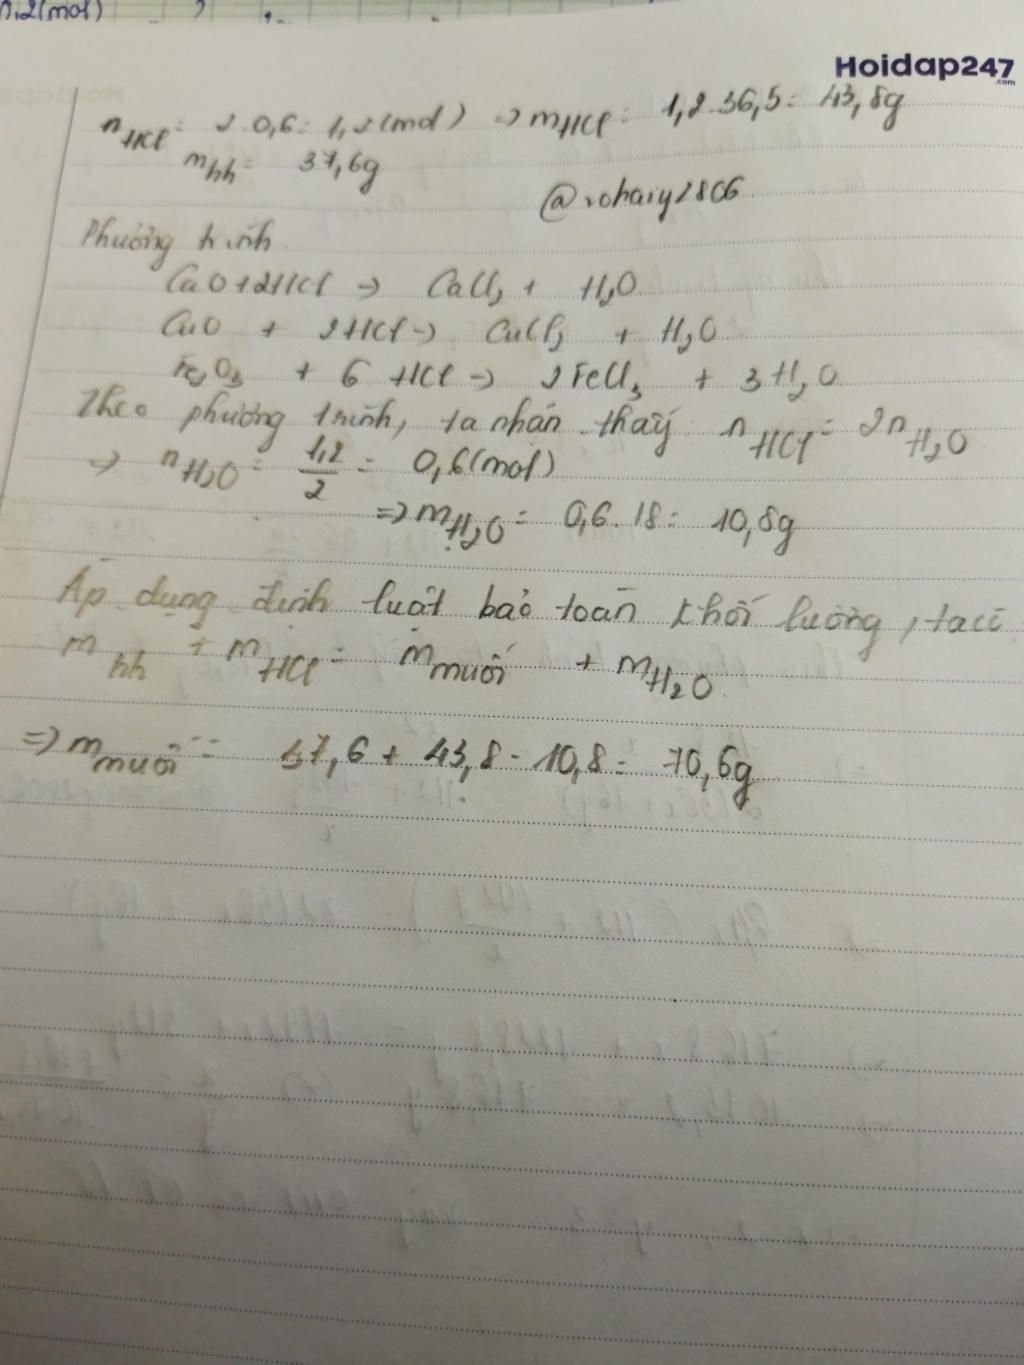 0,2(mol)
Hoidap247
.com
nHCl = 2.0,6 = 1,2(mol) => mHCl = 1,2.36,5 = 43,8g
mhh = 37,6g
Phương trình
CaO + 2HCl -> CaCl2 + H2O
CuO + 2HCl -> CuCl2 + H2O
Fe2O3 + 6 HCl -> 2FeCl3 + 3H2O
Theo phương trình, ta nhận thấy nHCl = 2nH2O
=> nH2O = 1,2/2 = 0,6(mol)
=> mH2O = 0,6.18 = 10,8g
Áp dụng định luật bảo toàn khối lượng, ta có
mhh + mHCl = mmuối + mH2O
=> mmuối = 37,6 + 43,8 - 10,8 = 70,6g